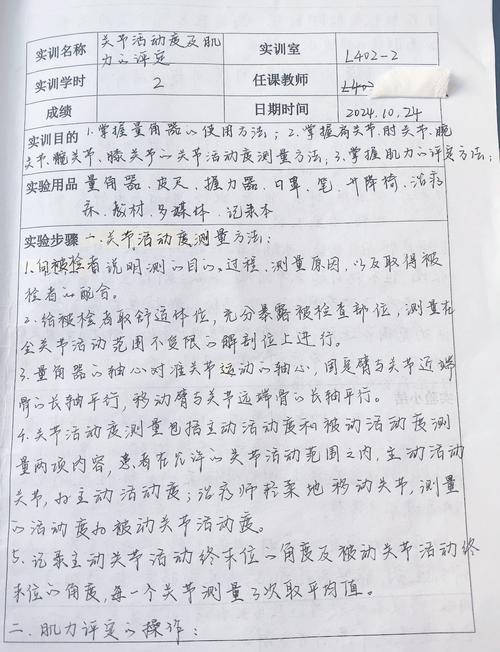 实训名称 关节活动度及肌力的评定 实训室 L402-2
实训学时 2 任课教师
成绩 日期时间 2024.10.24
实训目的 1.掌握量角器的使用方法；2.掌握肩关节、肘关节、腕
关节、髋关节、膝关节的关节活动度测量方法；3.掌握肌力的评定方法；
实验用品 量角器、皮尺、握力器、口罩、笔、升降椅、治疗
床、教材、多媒体、记录本
实验步骤 一、关节活动度测量方法：
1.向被检者说明测的目的、过程、测量原因，以及取得被
检者的配合。
2.给被检者取舒适体位，充分暴露被检查部位，测量在
全关节活动范围不受限的解剖位上进行。
3.量角器的轴心对准关节运动的轴心，固定臂与关节近端
骨的长轴平行，移动臂与关节远端骨的长轴平行。
4.关节活动度测量包括主动活动度和被动活动度测
量两项内容，患者在允许的关节活动范围之内，主动活动
关节，为主动活动度；治疗师轻柔地移动关节，测量
的活动度为被动关节活动度。
5、记录主动关节活动终末位的角度及被动关节活动终
末位的角度，每一个关节测量3次取平均值。
二、肌力评定的操作：